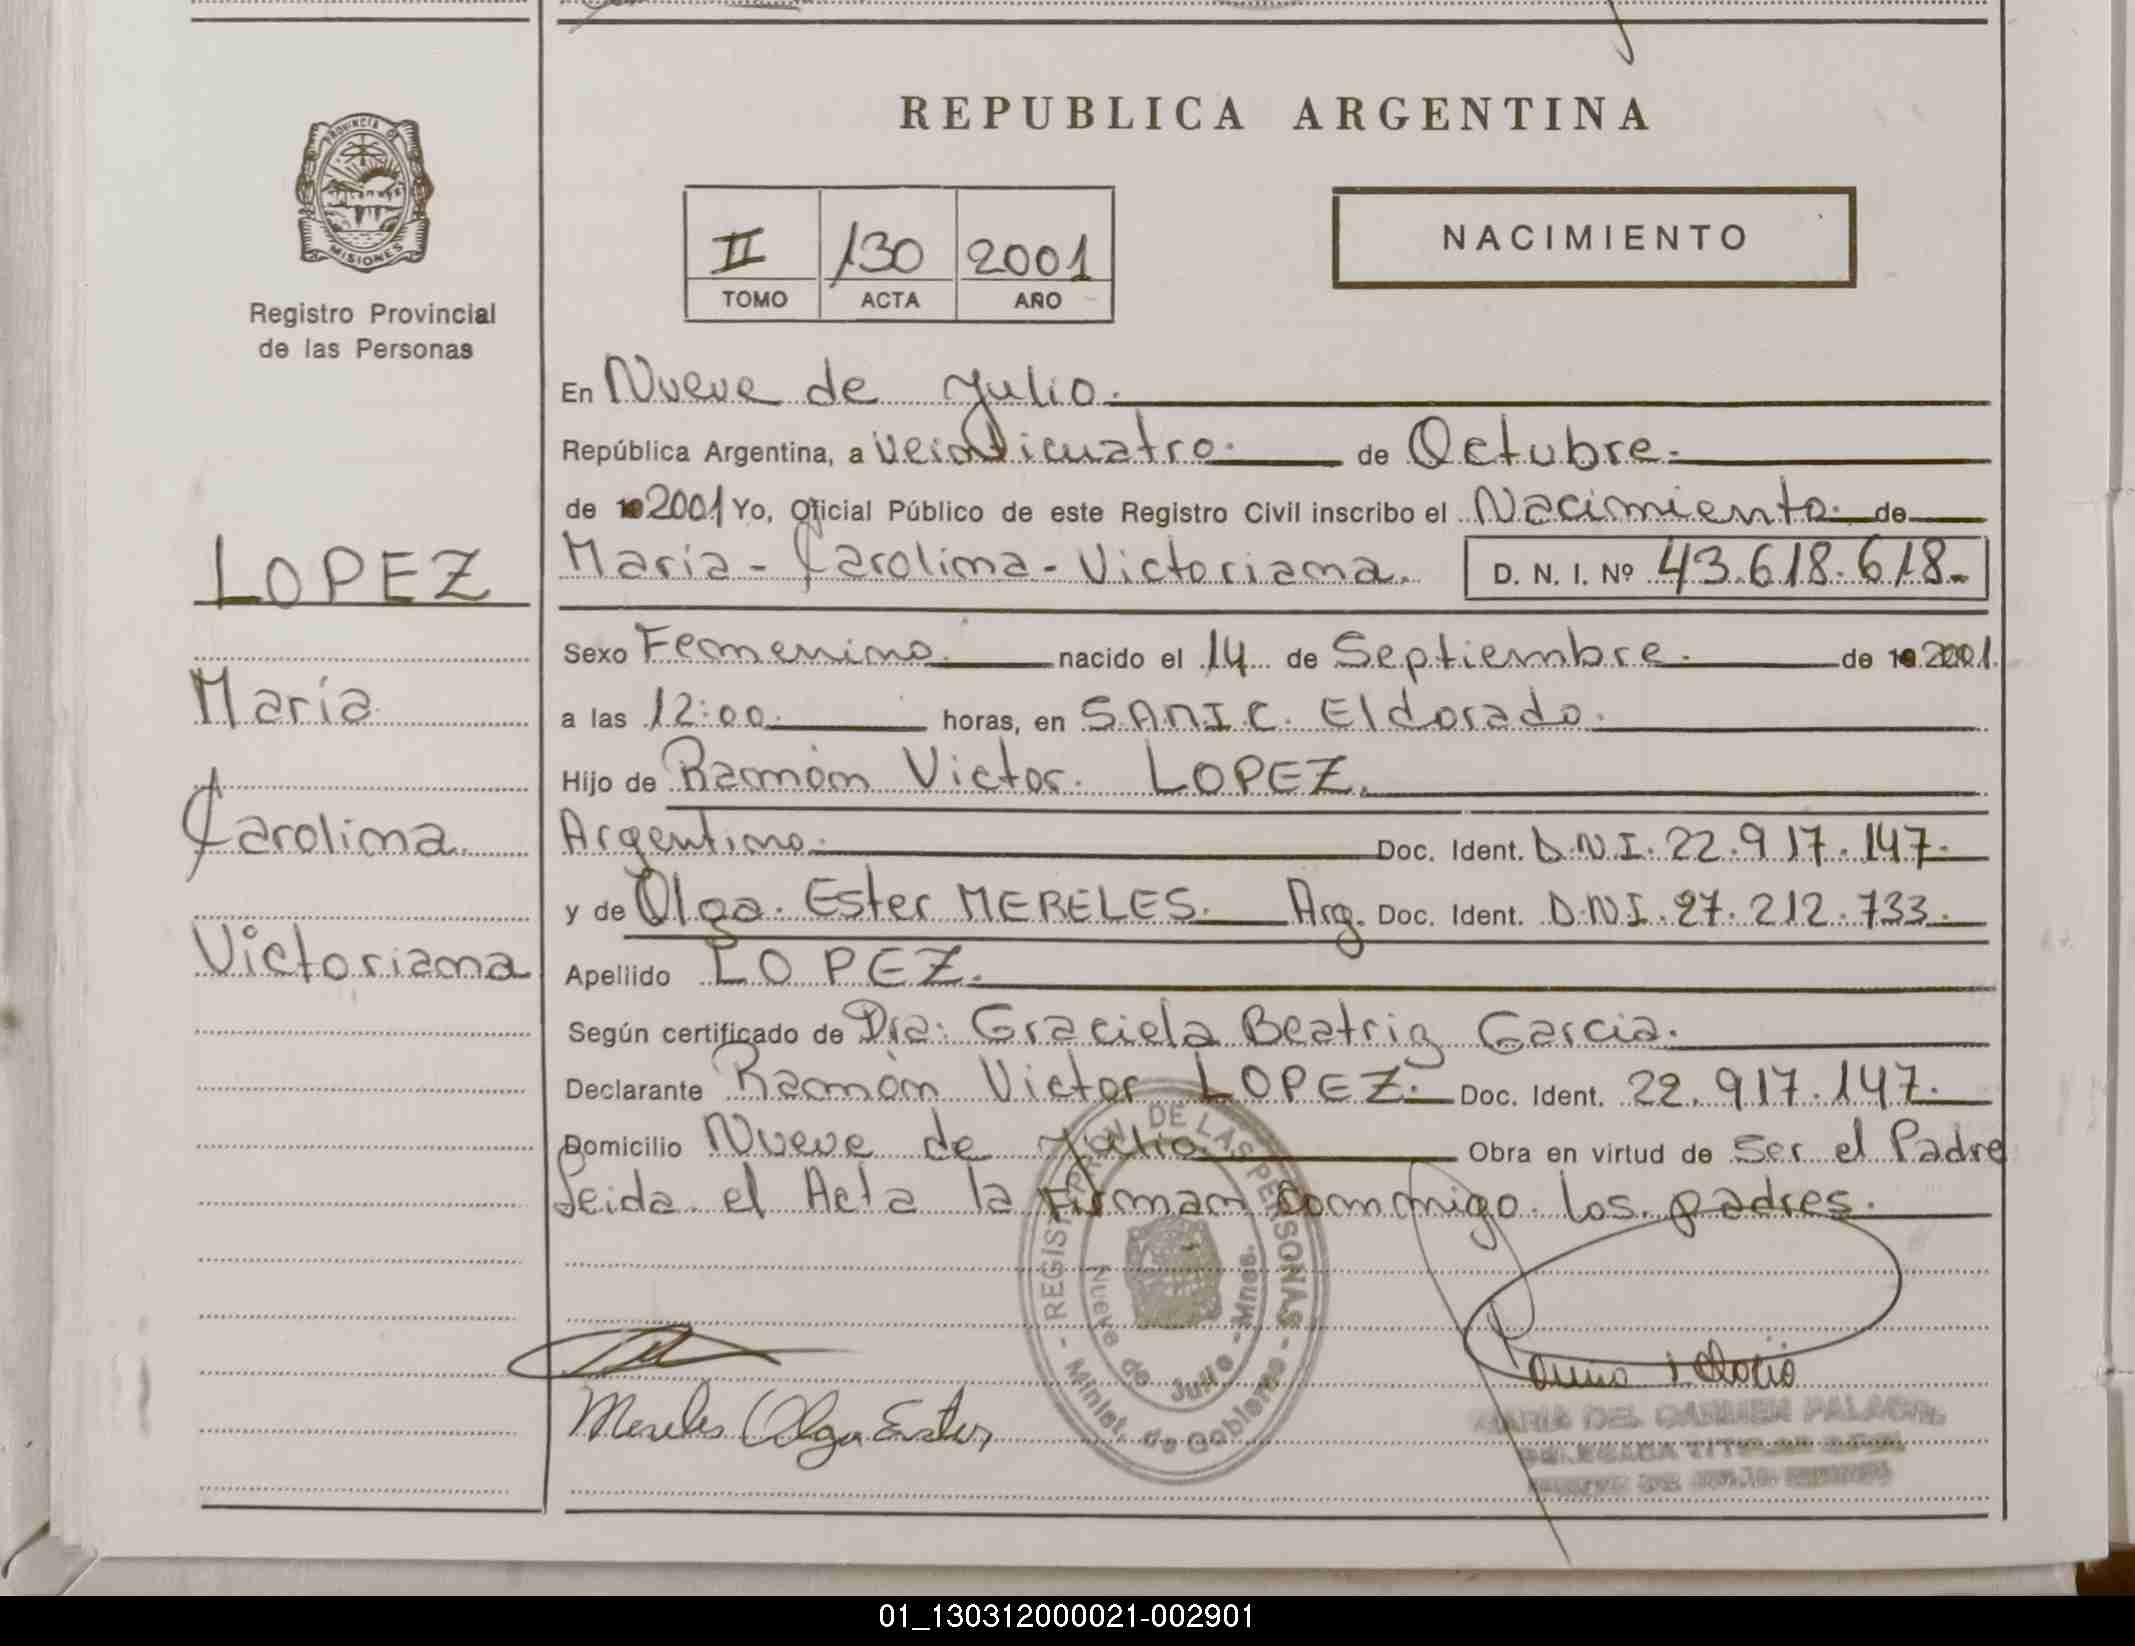 REPUBLICA ARGENTINA
PROVINCIA DE MISIONES
Registro Provincial
de las Personas
II 130 2001
TOMO ACTA AÑO
NACIMIENTO
En Nueve de Julio.
República Argentina, a veinticuatro. de Octubre.
de 2001 Yo, Oficial Público de este Registro Civil inscribo el Nacimiento de
María - Carolina - Victoriana. D. N. I. Nº 43.618.618.
Sexo Femenino. nacido el 14 de Septiembre. de 2001.
a las 12:00. horas, en S.A.M.I.C. Eldorado.
Hijo de Ramón Victor. LOPEZ.
Argentino. Doc. Ident. D.N.I. 22.917.147.
y de Olga. Ester MERELES. Arg. Doc. Ident. D.N.I. 27.212.733.
Apellido LOPEZ.
Según certificado de Dra: Graciela Beatriz Garcia.
Declarante Ramón Victor LOPEZ. Doc. Ident. 22.917.147.
Domicilio Nueve de Julio Obra en virtud de Ser el Padre
Leida el Acta la Firman conmigo los padres.
LOPEZ
María
Carolina
Victoriana
REGISTRO PROV. DE LAS PERSONAS
Nueve de Julio - Mnes.
Minist. de Gobierno
Mereles Olga Ester
MARIA DEL CARMEN
DELEGADA TITULAR
NUEVE DE JULIO
01_130312000021-002901